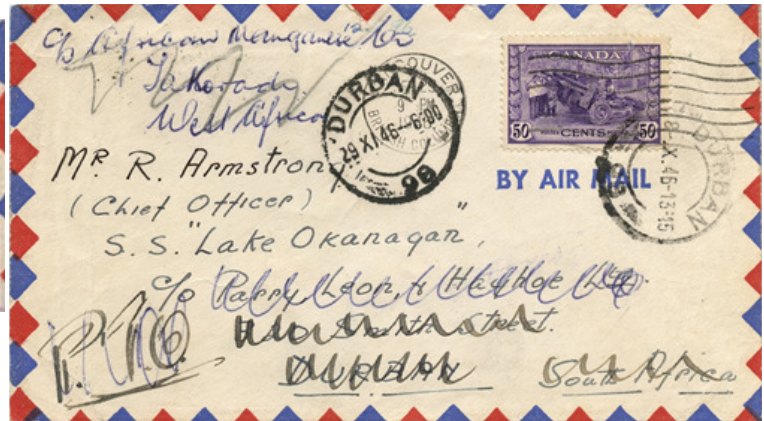 c/o African Manganese Co
Takoradi
West Africa
VANCOUVER
9 PM
BRITISH COLUMBIA
DURBAN
29 XI 46 - 6:06
96
CANADA
50 CENTS 50
BY AIR MAIL
DURBAN
X. 46-13:15
Mr R. Armstrong
(Chief Officer)
S.S. "Lake Okanagan",
c/o Parry, Leon & Hayhoe Ltd.
Smith Street.
DURBAN South Africa